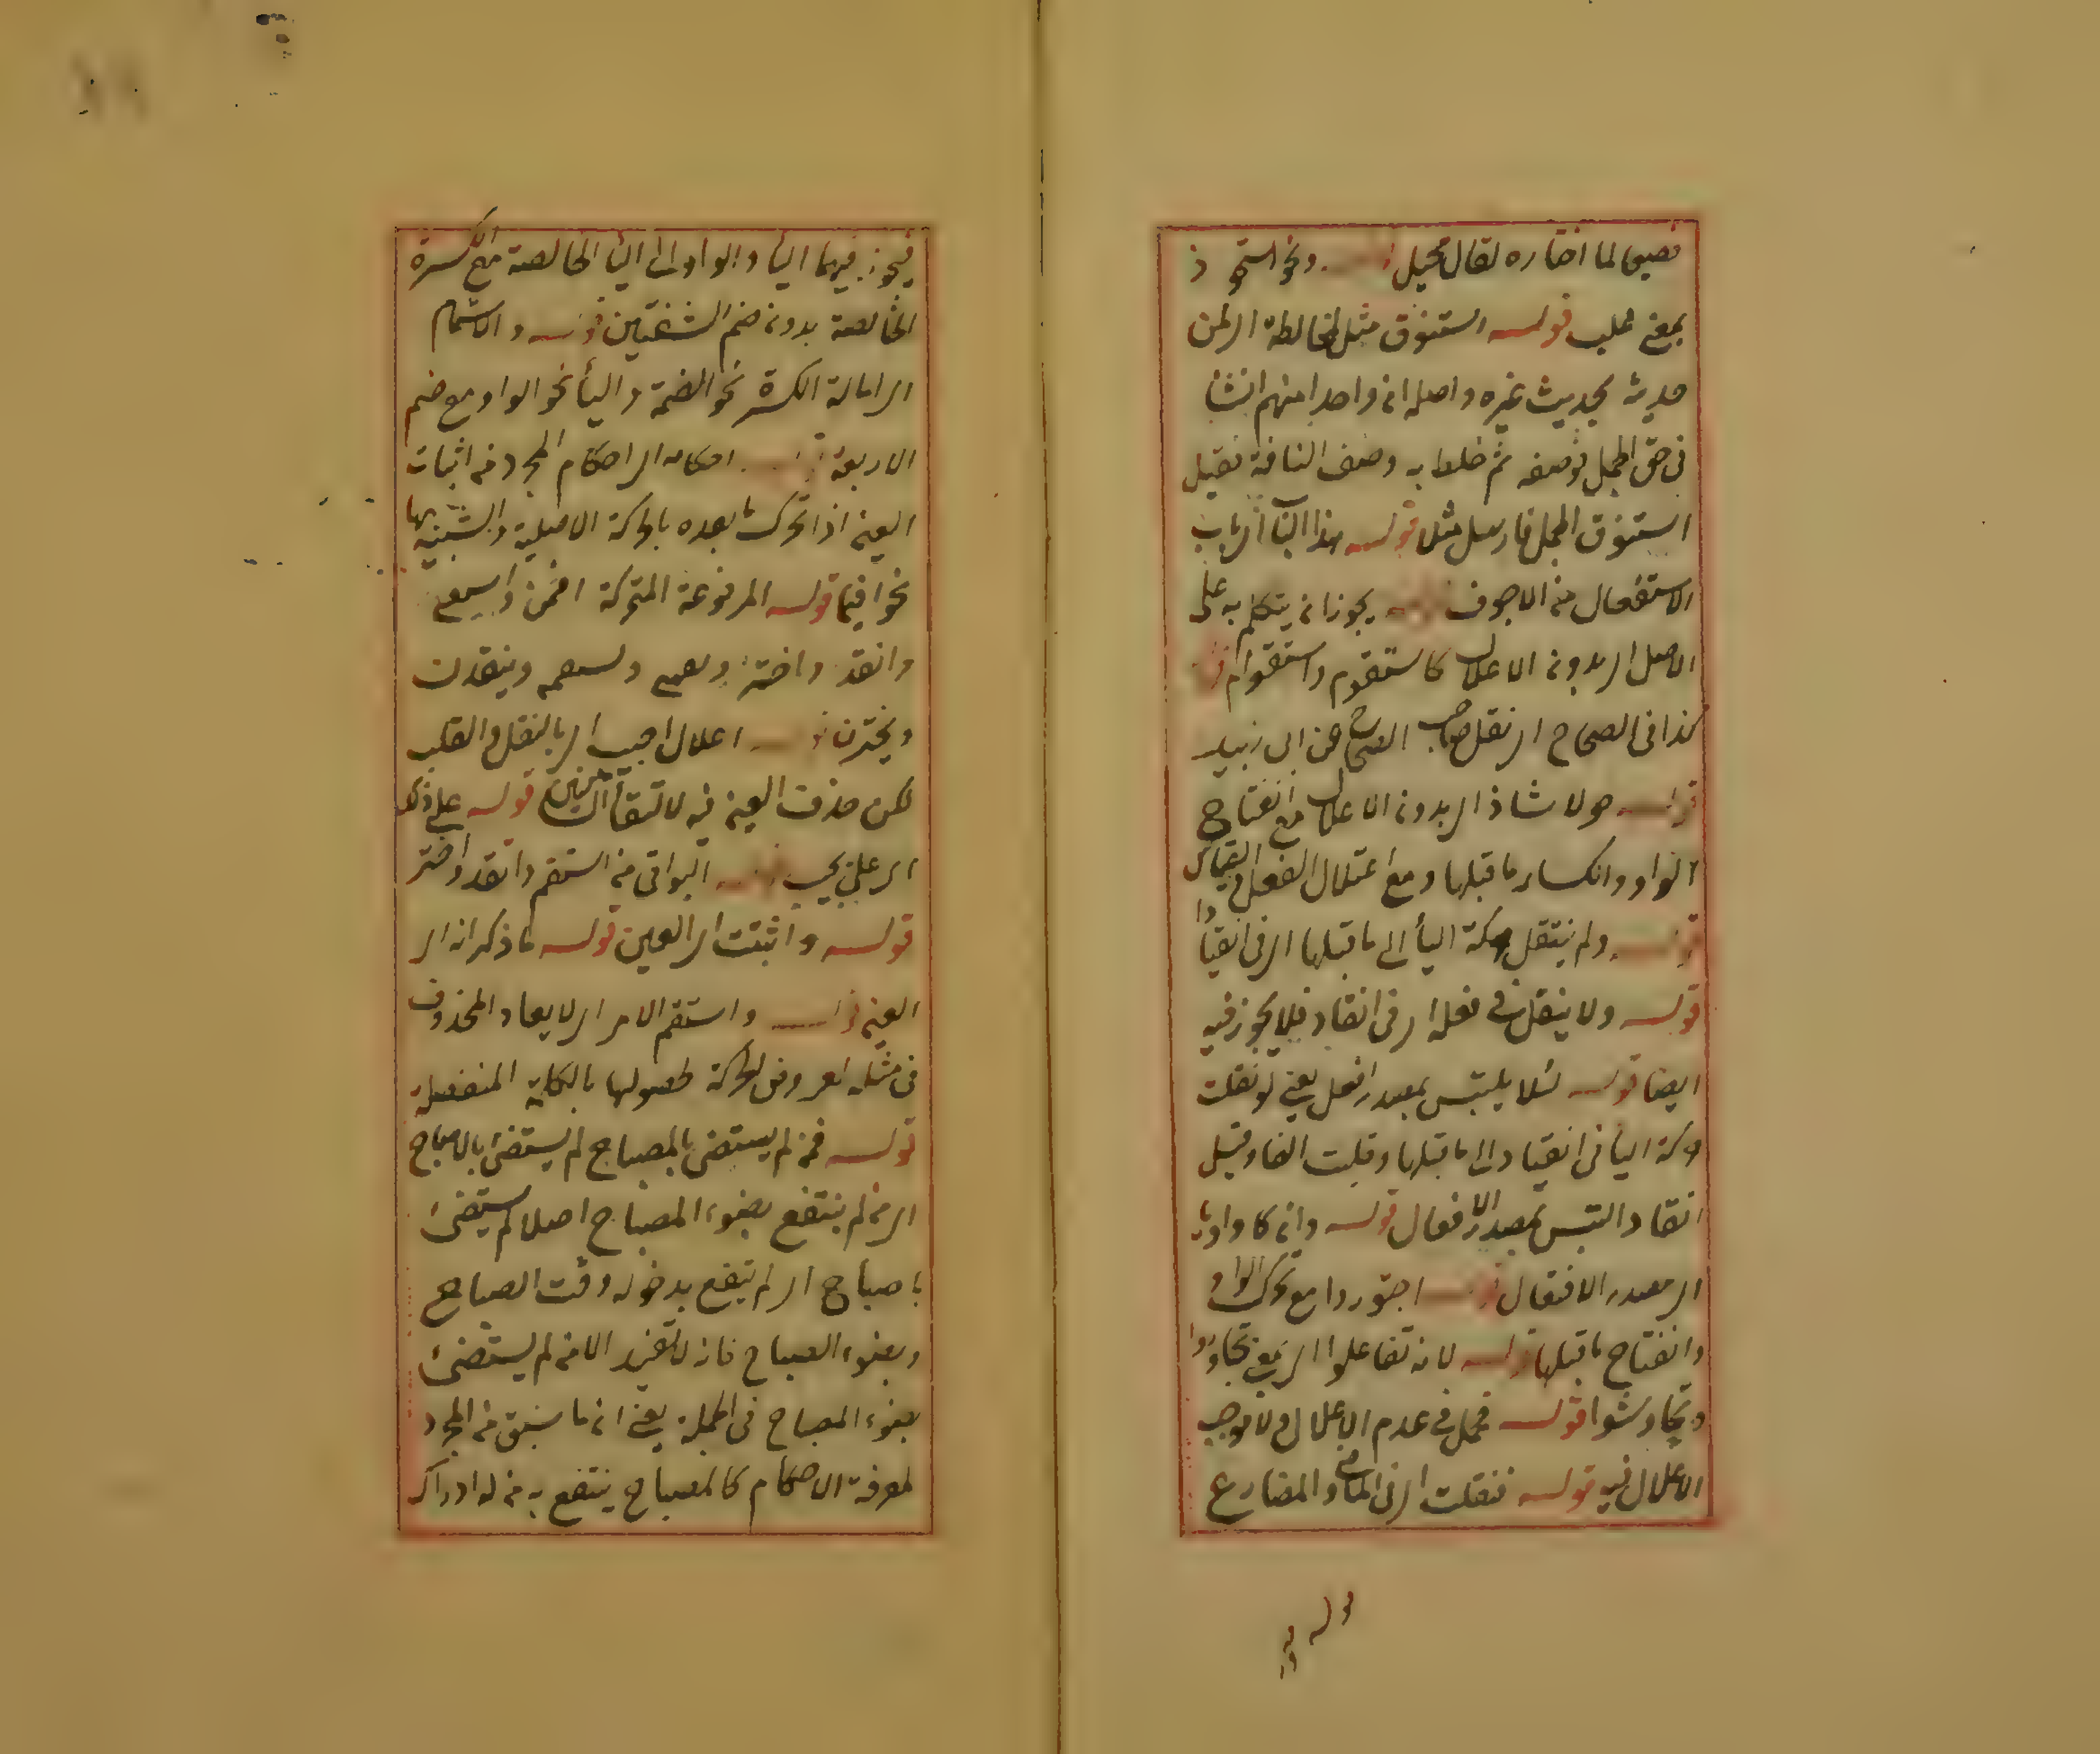 نصيحا لما اختاره لقال مخيل قوله ونحو استحوذ
بمعنى غلب قوله استنوق مثل لمخالطة الرلمن
حديثه بحديث غيره واصله ان واحدا منهم انشأ
فى حق الجمل فوصفه ثم خلطه به وصف الناقة فقيل
استنوق الجمل فارسل مثلا قوله هذا البناء اى باب
الاستفعال من الاجوف قوله يجوز ان يتكلم به على
الاصل اى بدون الاعلال كاستقوم واستقوام قوله
كذا فى الصحاح اى نقل صاحب الصحاح عن ابى زيد
قوله حولا شاذ اى بدون الاعلال مع انفتاح
الواو وانكسار ما قبلها ومع اعتلال الفعل القياس
قوله ولم ينتقل حركة الياء الى ما قبلها اى فى انقيادا
قوله ولا ينقل فى فعله اى فى انقاد فلا يجوز فيه
ايضا قوله لئلا يلتبس بمصدر افعل يعنى لو نقلت
حركة الياء فى انقياد الى ما قبلها وقلبت الفا وقيل
انقاد التبس بمصدر الافعال قوله وان كا واويا
اى مصدر الافتعال قوله اجتوروا مع تحرك الواو
وانفتاح ما قبلها قوله لانه تفاعلوا اى بمعنى تجاوروا
وتجاوشوا قوله فحمل فى عدم الاعلال ولا موجب
الاعلال فيه قوله فنقلت اى فى الماضى والمضارع
فيجوز فيهما الياء والواو اى الياء الخالصة مع الكسرة
الخالصة بدون ضم الشفتين قوله والاشمام
اى امالة الكسرة نحو الضمة والياء نحو الواو مع ضم
الاربعة قوله احكامه اى احكام المجرد من اثبات
العين اذا تحرك ما بعده بالحركة الاصلية والشبيهة بها
نحو افيما قوله المرفوعة المتحركة
وانقد واختر ولسعمه وينقدن
ويخترن قوله اعلال اجيب اى بالنقل والقلب
لكن حذفت العين فيه لالتقاء الساكنين قوله على ذلك
اى على يجيب قوله البواقى من استقم وانقد واختر
قوله واثبتت اى العين قوله ما ذكر انه اى
العين قوله واستقم الامر اى لا يعاد المحذوف
فى مثله لعروض الحركة لحصولها بالكلمة المنفصلة
قوله فمن لم يستضئ بالمصباح لم يستضئ بالاصباح
اى من لم ينتفع بضوء المصباح اصلا لم يستضئ
باصباح اى لم ينتفع بدخوله وقت الصباح
وبضوء الصباح فانه لا تفيد الا من لم يستضئ
بضوء المصباح فى الجملة يعنى ان ما سبق من المجرد
لمعرفة الاحكام كالمصباح ينتفع به من له ادراك